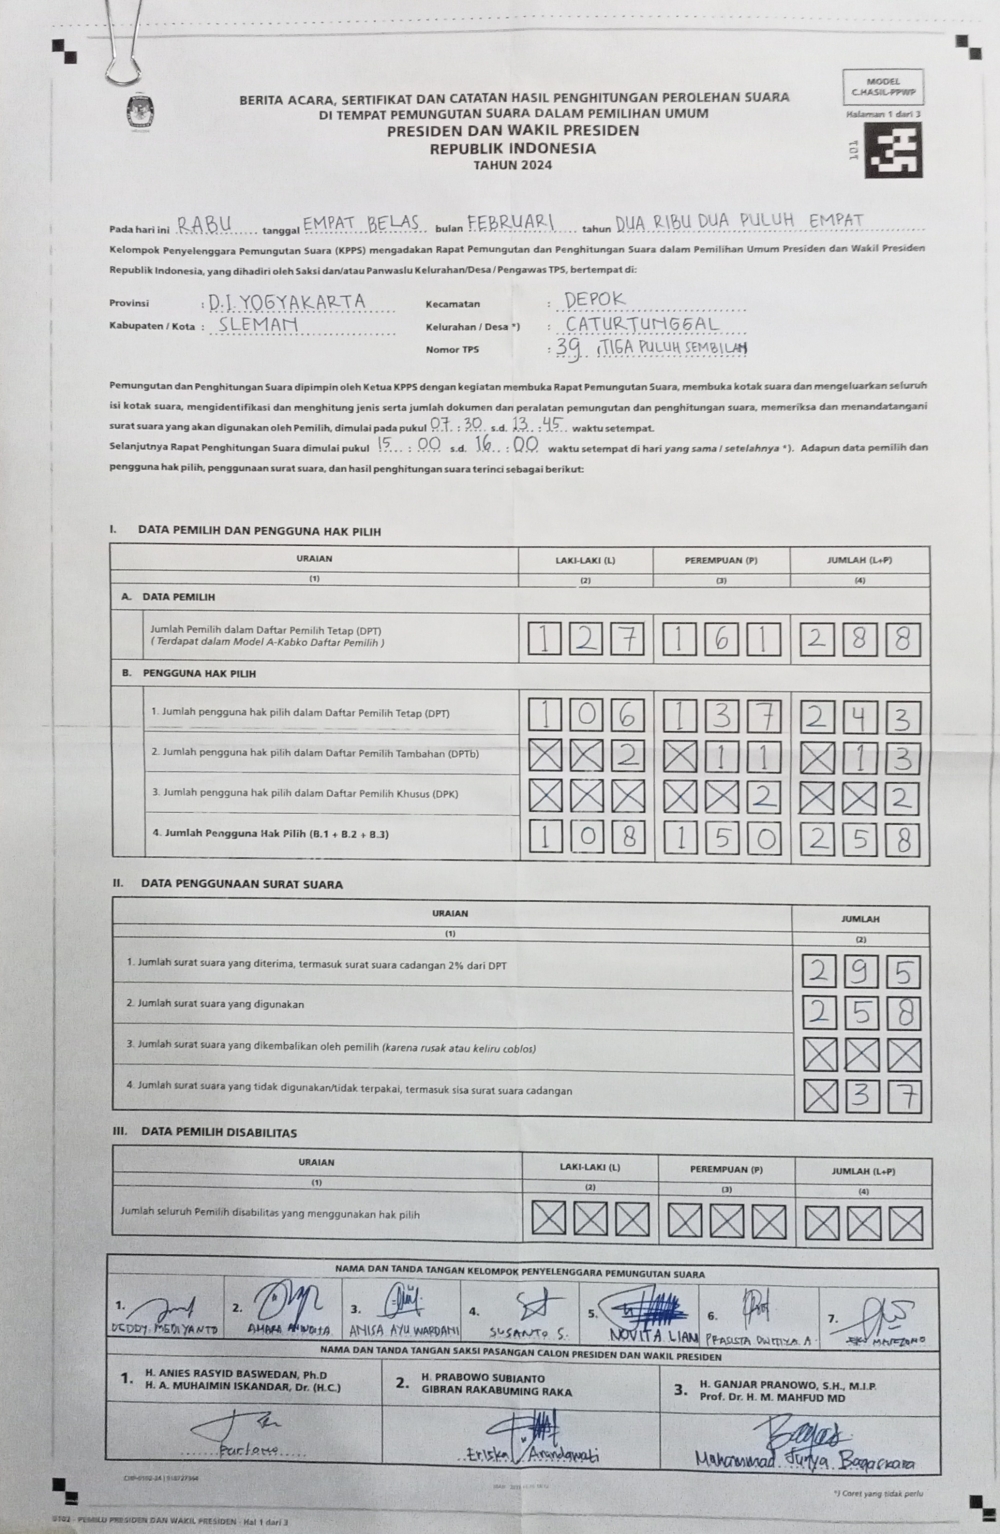 MODEL
C.HASIL-PPWP
Halaman 1 dari 3
101
BERITA ACARA, SERTIFIKAT DAN CATATAN HASIL PENGHITUNGAN PEROLEHAN SUARA
DI TEMPAT PEMUNGUTAN SUARA DALAM PEMILIHAN UMUM
PRESIDEN DAN WAKIL PRESIDEN
REPUBLIK INDONESIA
TAHUN 2024
Pada hari ini RABU tanggal EMPAT BELAS bulan FEBRUARI tahun DUA RIBU DUA PULUH EMPAT
Kelompok Penyelenggara Pemungutan Suara (KPPS) mengadakan Rapat Pemungutan dan Penghitungan Suara dalam Pemilihan Umum Presiden dan Wakil Presiden
Republik Indonesia, yang dihadiri oleh Saksi dan/atau Panwaslu Kelurahan/Desa / Pengawas TPS, bertempat di:
Provinsi : D.I. YOGYAKARTA Kecamatan : DEPOK
Kabupaten / Kota : SLEMAN Kelurahan / Desa *) : CATURTUNGGAL
Nomor TPS : 39 / TIGA PULUH SEMBILAN
Pemungutan dan Penghitungan Suara dipimpin oleh Ketua KPPS dengan kegiatan membuka Rapat Pemungutan Suara, membuka kotak suara dan mengeluarkan seluruh
isi kotak suara, mengidentifikasi dan menghitung jenis serta jumlah dokumen dan peralatan pemungutan dan penghitungan suara, memeriksa dan menandatangani
surat suara yang akan digunakan oleh Pemilih, dimulai pada pukul 07 : 30 s.d. 13 : 45 waktu setempat.
Selanjutnya Rapat Penghitungan Suara dimulai pukul 15 : 00 s.d. 16 : 00 waktu setempat di hari yang sama / setelahnya *). Adapun data pemilih dan
pengguna hak pilih, penggunaan surat suara, dan hasil penghitungan suara terinci sebagai berikut:
I. DATA PEMILIH DAN PENGGUNA HAK PILIH
URAIAN LAKI-LAKI (L) PEREMPUAN (P) JUMLAH (L+P)
(1) (2) (3) (4)
A. DATA PEMILIH
Jumlah Pemilih dalam Daftar Pemilih Tetap (DPT)
( Terdapat dalam Model A-Kabko Daftar Pemilih ) 1 2 7 1 6 1 2 8 8
B. PENGGUNA HAK PILIH
1. Jumlah pengguna hak pilih dalam Daftar Pemilih Tetap (DPT) 1 0 6 1 3 7 2 4 3
2. Jumlah pengguna hak pilih dalam Daftar Pemilih Tambahan (DPTb) X X 2 X 1 1 X 1 3
3. Jumlah pengguna hak pilih dalam Daftar Pemilih Khusus (DPK) X X X X X 2 X X 2
4. Jumlah Pengguna Hak Pilih (B.1 + B.2 + B.3) 1 0 8 1 5 0 2 5 8
II. DATA PENGGUNAAN SURAT SUARA
URAIAN JUMLAH
(1) (2)
1. Jumlah surat suara yang diterima, termasuk surat suara cadangan 2% dari DPT 2 9 5
2. Jumlah surat suara yang digunakan 2 5 8
3. Jumlah surat suara yang dikembalikan oleh pemilih (karena rusak atau keliru coblos) X X X
4. Jumlah surat suara yang tidak digunakan/tidak terpakai, termasuk sisa surat suara cadangan X 3 7
III. DATA PEMILIH DISABILITAS
URAIAN LAKI-LAKI (L) PEREMPUAN (P) JUMLAH (L+P)
(1) (2) (3) (4)
Jumlah seluruh Pemilih disabilitas yang menggunakan hak pilih X X X X X X X X X
NAMA DAN TANDA TANGAN KELOMPOK PENYELENGGARA PEMUNGUTAN SUARA
1. 2. 3. 4. 5. 6. 7.
DEDDY MEDIYANTO ANISA AYU WARDANI SUSANTO S. NOVITA LIANI
NAMA DAN TANDA TANGAN SAKSI PASANGAN CALON PRESIDEN DAN WAKIL PRESIDEN
1. H. ANIES RASYID BASWEDAN, Ph.D
H. A. MUHAIMIN ISKANDAR, Dr. (H.C.)
2. H. PRABOWO SUBIANTO
GIBRAN RAKABUMING RAKA
3. H. GANJAR PRANOWO, S.H., M.I.P.
Prof. Dr. H. M. MAHFUD MD
Eriska Anandawati Mohammad Surya Bagaskara
*) Coret yang tidak perlu
0102 - PEMILU PRESIDEN DAN WAKIL PRESIDEN - Hal 1 dari 3